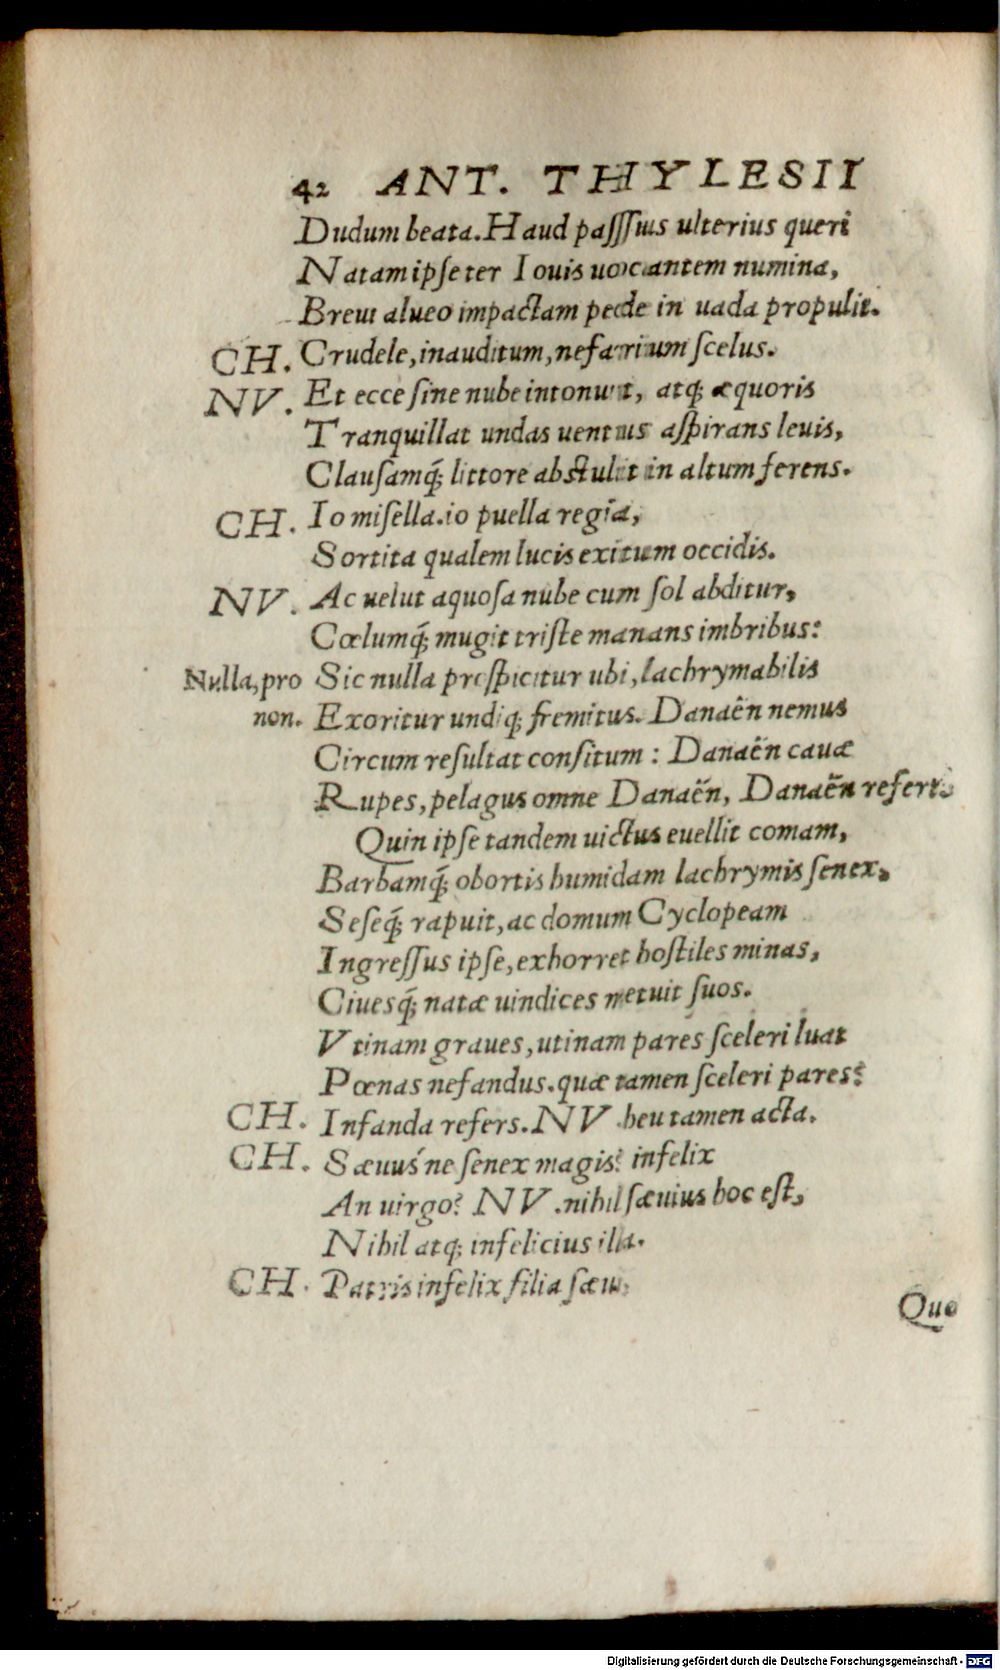 42 ANT. THYLESII
Dudum beata. Haud passus ulterius queri
Natam ipse ter Iouis uocantem numina,
Breui alueo impactam pede in uada propulit.
CH. Crudele, inauditum, nefarium scelus.
NV. Et ecce sine nube intonuit, atq; æquoris
Tranquillat undas uentus aspirans leuis,
Clausamq́; littore abstulit in altum ferens.
CH. Io misella. io puella regia,
Sortita qualem lucis exitum occidis.
NV. Ac uelut aquosa nube cum sol abditur,
Cœlumq́; mugit triste manans imbribus:
Nulla, pro Sic nulla prospicitur ubi, lachrymabilis
non. Exoritur undiq; fremitus. Danaën nemus
Circum resultat consitum: Danaën cauæ
Rupes, pelagus omne Danaën, Danaën refert.
Quin ipse tandem uictus euellit comam,
Barbamq́; obortis humidam lachrymis senex.
Seseq́; rapuit, ac domum Cyclopeam
Ingressus ipse, exhorret hostiles minas,
Ciuesq́; natæ uindices metuit suos.
Vtinam graues, utinam pares sceleri luat
Pœnas nefandus. quæ tamen sceleri pares?
CH. Infanda refers. NV. heu tamen acta.
CH. Sæuuśne senex magis? infelix
An uirgo? NV. nihil sæuius hoc est,
Nihil atq; infelicius illa.
CH. Patris infelix filia sæui,
Quo
Digitalisierung gefördert durch die Deutsche Forschungsgemeinschaft - DFG